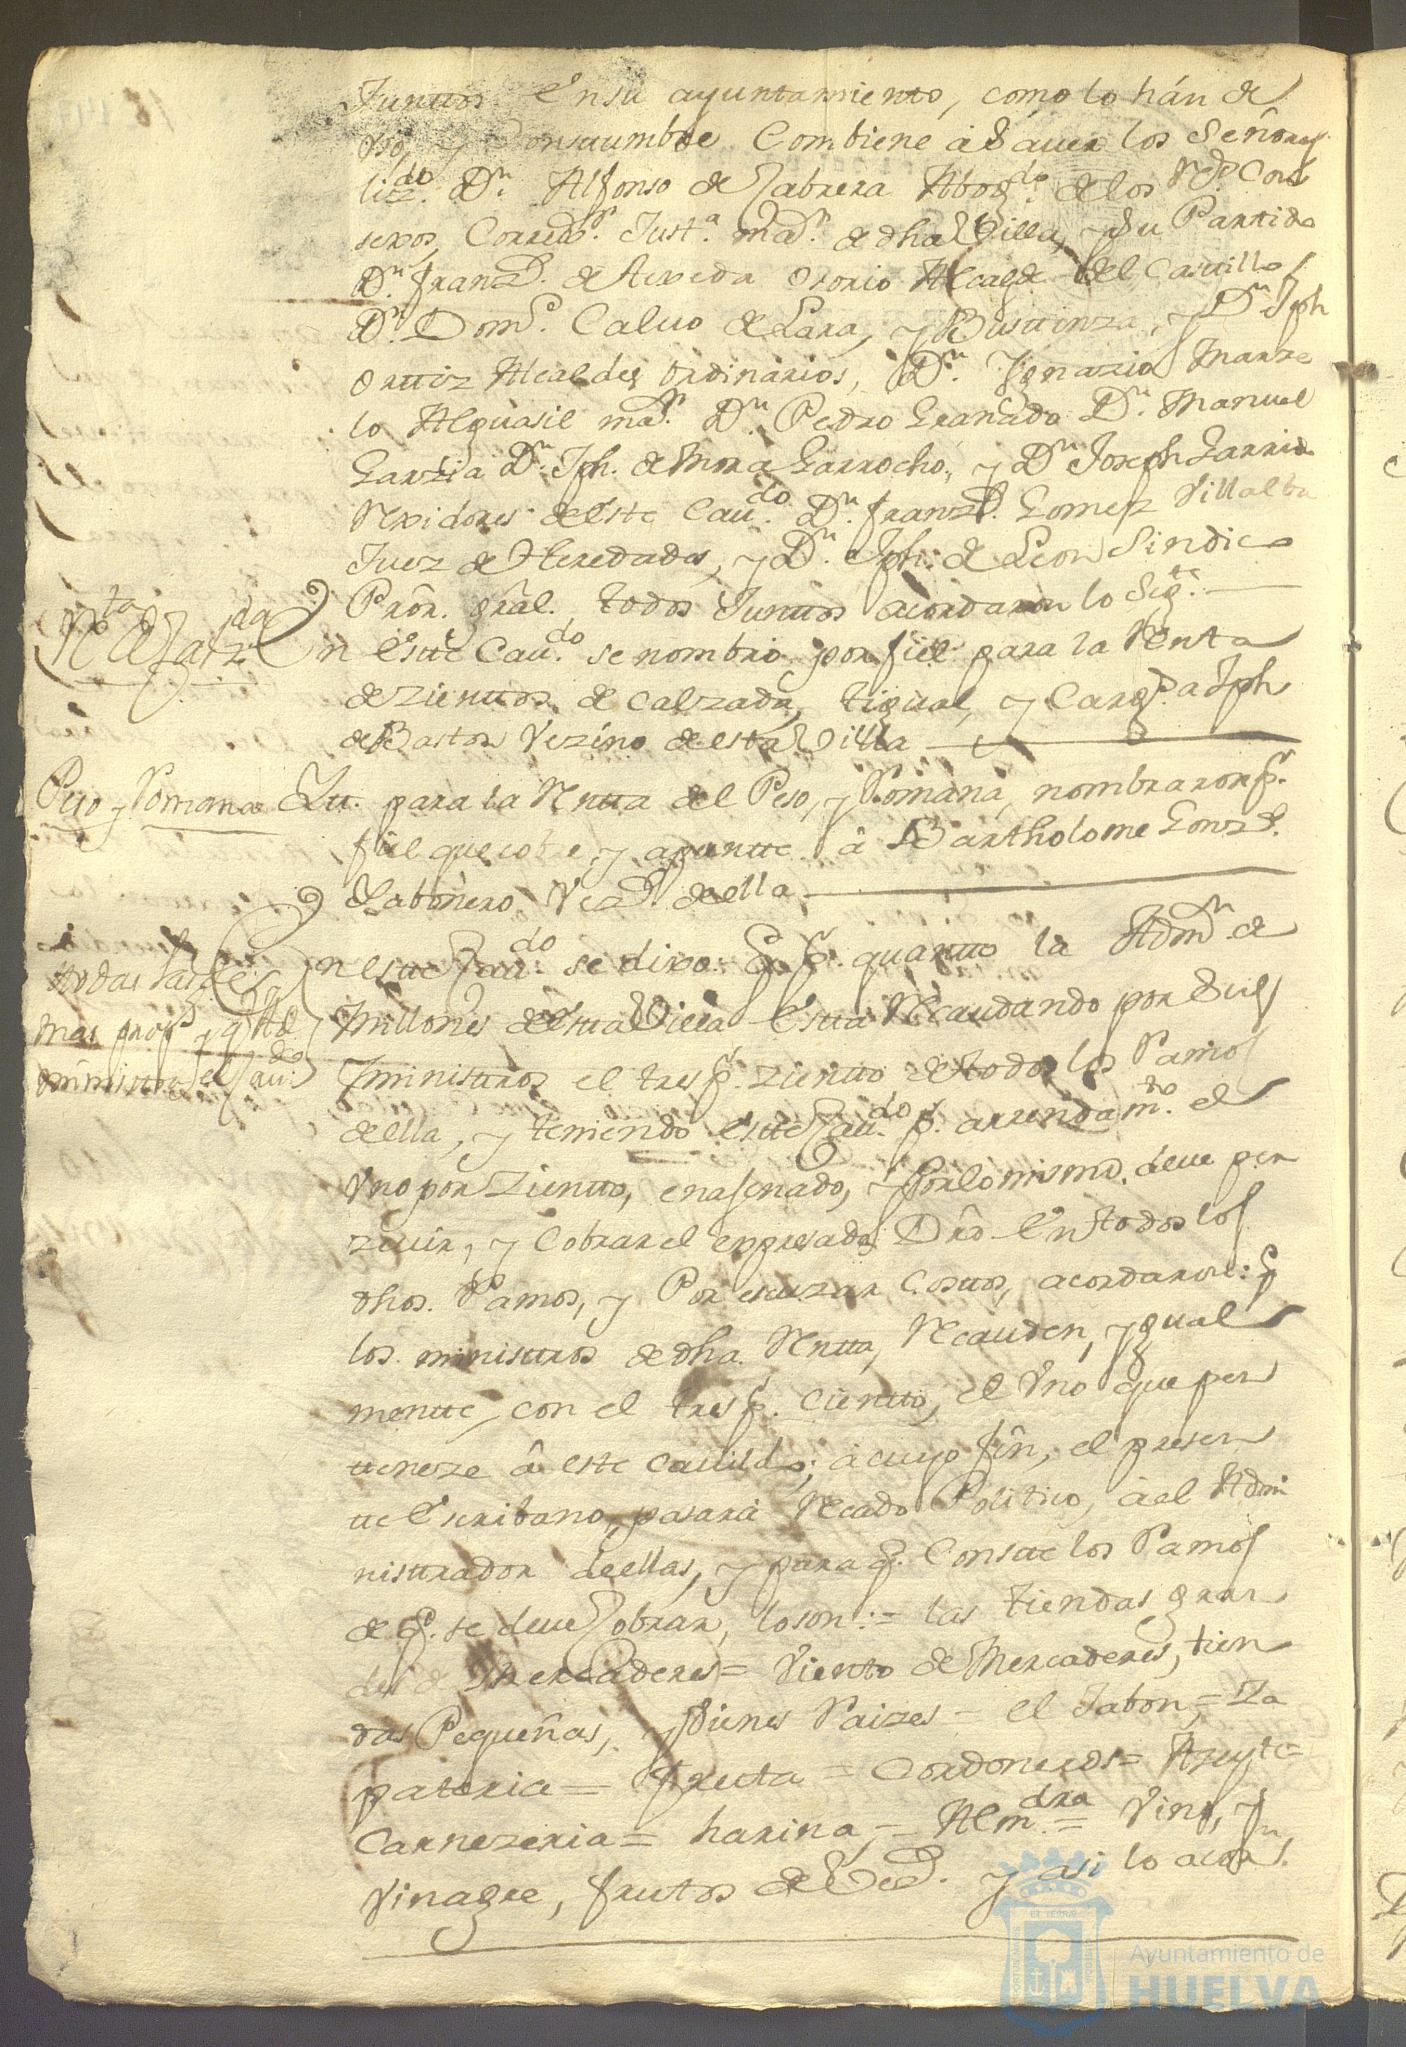 Junttos en su ayuntamiento, como lo hán de
Vso, y Consttumbre Combiene á Sauer los Señores
liz.do D.n Alfonso de Cabrera Abog.do de los R.s Con
sexos, Correx.r Just.a ma.r de dha Villa, y Su Partido
D.n Fran.co de Aseveda Osorio Alcayde del Casttillo
D.n Dom.o Caluo de Lara, y Busttinza, y D.n Jph
Orttiz Alcaldes ordinarios, D.n Ygnazio Marze
lo Alguasil ma.r D.n Pedro Granado D.n Manuel
Garzia D.n Jph. de Mora Garrocho, y D.n Joseph Garrido
Rexidores de este Cau.do D.n Fran.co Gomez Villalba
Juez de Heredades, y D.n Jph. de Leon Sindico
Prôr. grâl. todos Junttos acordaron lo Sig.te
R.ta de Calz.da
En estte Cau.do se nombrô por fiel para la Rentta
de zienttos de Calzada, tigual, y Carg.a a Jph
de Bastos Vezino de esta Villa
Peso y Romana
Ytt. para la Rentta del Peso, y Romana, nombraron p.r
fiel que cobre, y apuntte â Bartholome Gonz.s
Tabonero Vez.o de ella
todas las de
mas prop.s y q.e Ad
ministtra el Cau.do
En estte Cau.do se dixo: Q.e p.r quantto la Adm.n de
millones de estta Villa estta Recaudando por Sus
Ministtros el tres p.r zientto de todos los Ramos
de ella, y teniendo estte Cau.do p.r arrendam.to el
Vno por Zientto, enagenado, y por lo mismo deue per
zeuir, y Cobrar el expresado Dr̂o en todos los
dhos. Ramos, y Por escuzar Costtos, acordaron: q.e
los ministtros de dha. Rentta, Recauden, ygual
mentte, con el tres p.r Cientto, el Vno que per
tteneze â este Cauildo; á cuyo fin, el presen
tte Escribano, pasarà Recado Politico, á el Admi
nisttrador de ellas, y para q.e Constte los Ramos
de q.e se deue Cobrar, lo son: = las tiendas gran
des de Mercaderes = Viento de Mercaderes, tien
das Pequeñas, y Vienes Raizes = el Jabon, = Za
pateria = Fruta = Cordoneros = Azeyte =
Carnezeria = harina, = Alm.dra = Vino, y
Vinagre, frutos de Vez.o y asi lo acor.n
Ayuntamiento de
HUELVA